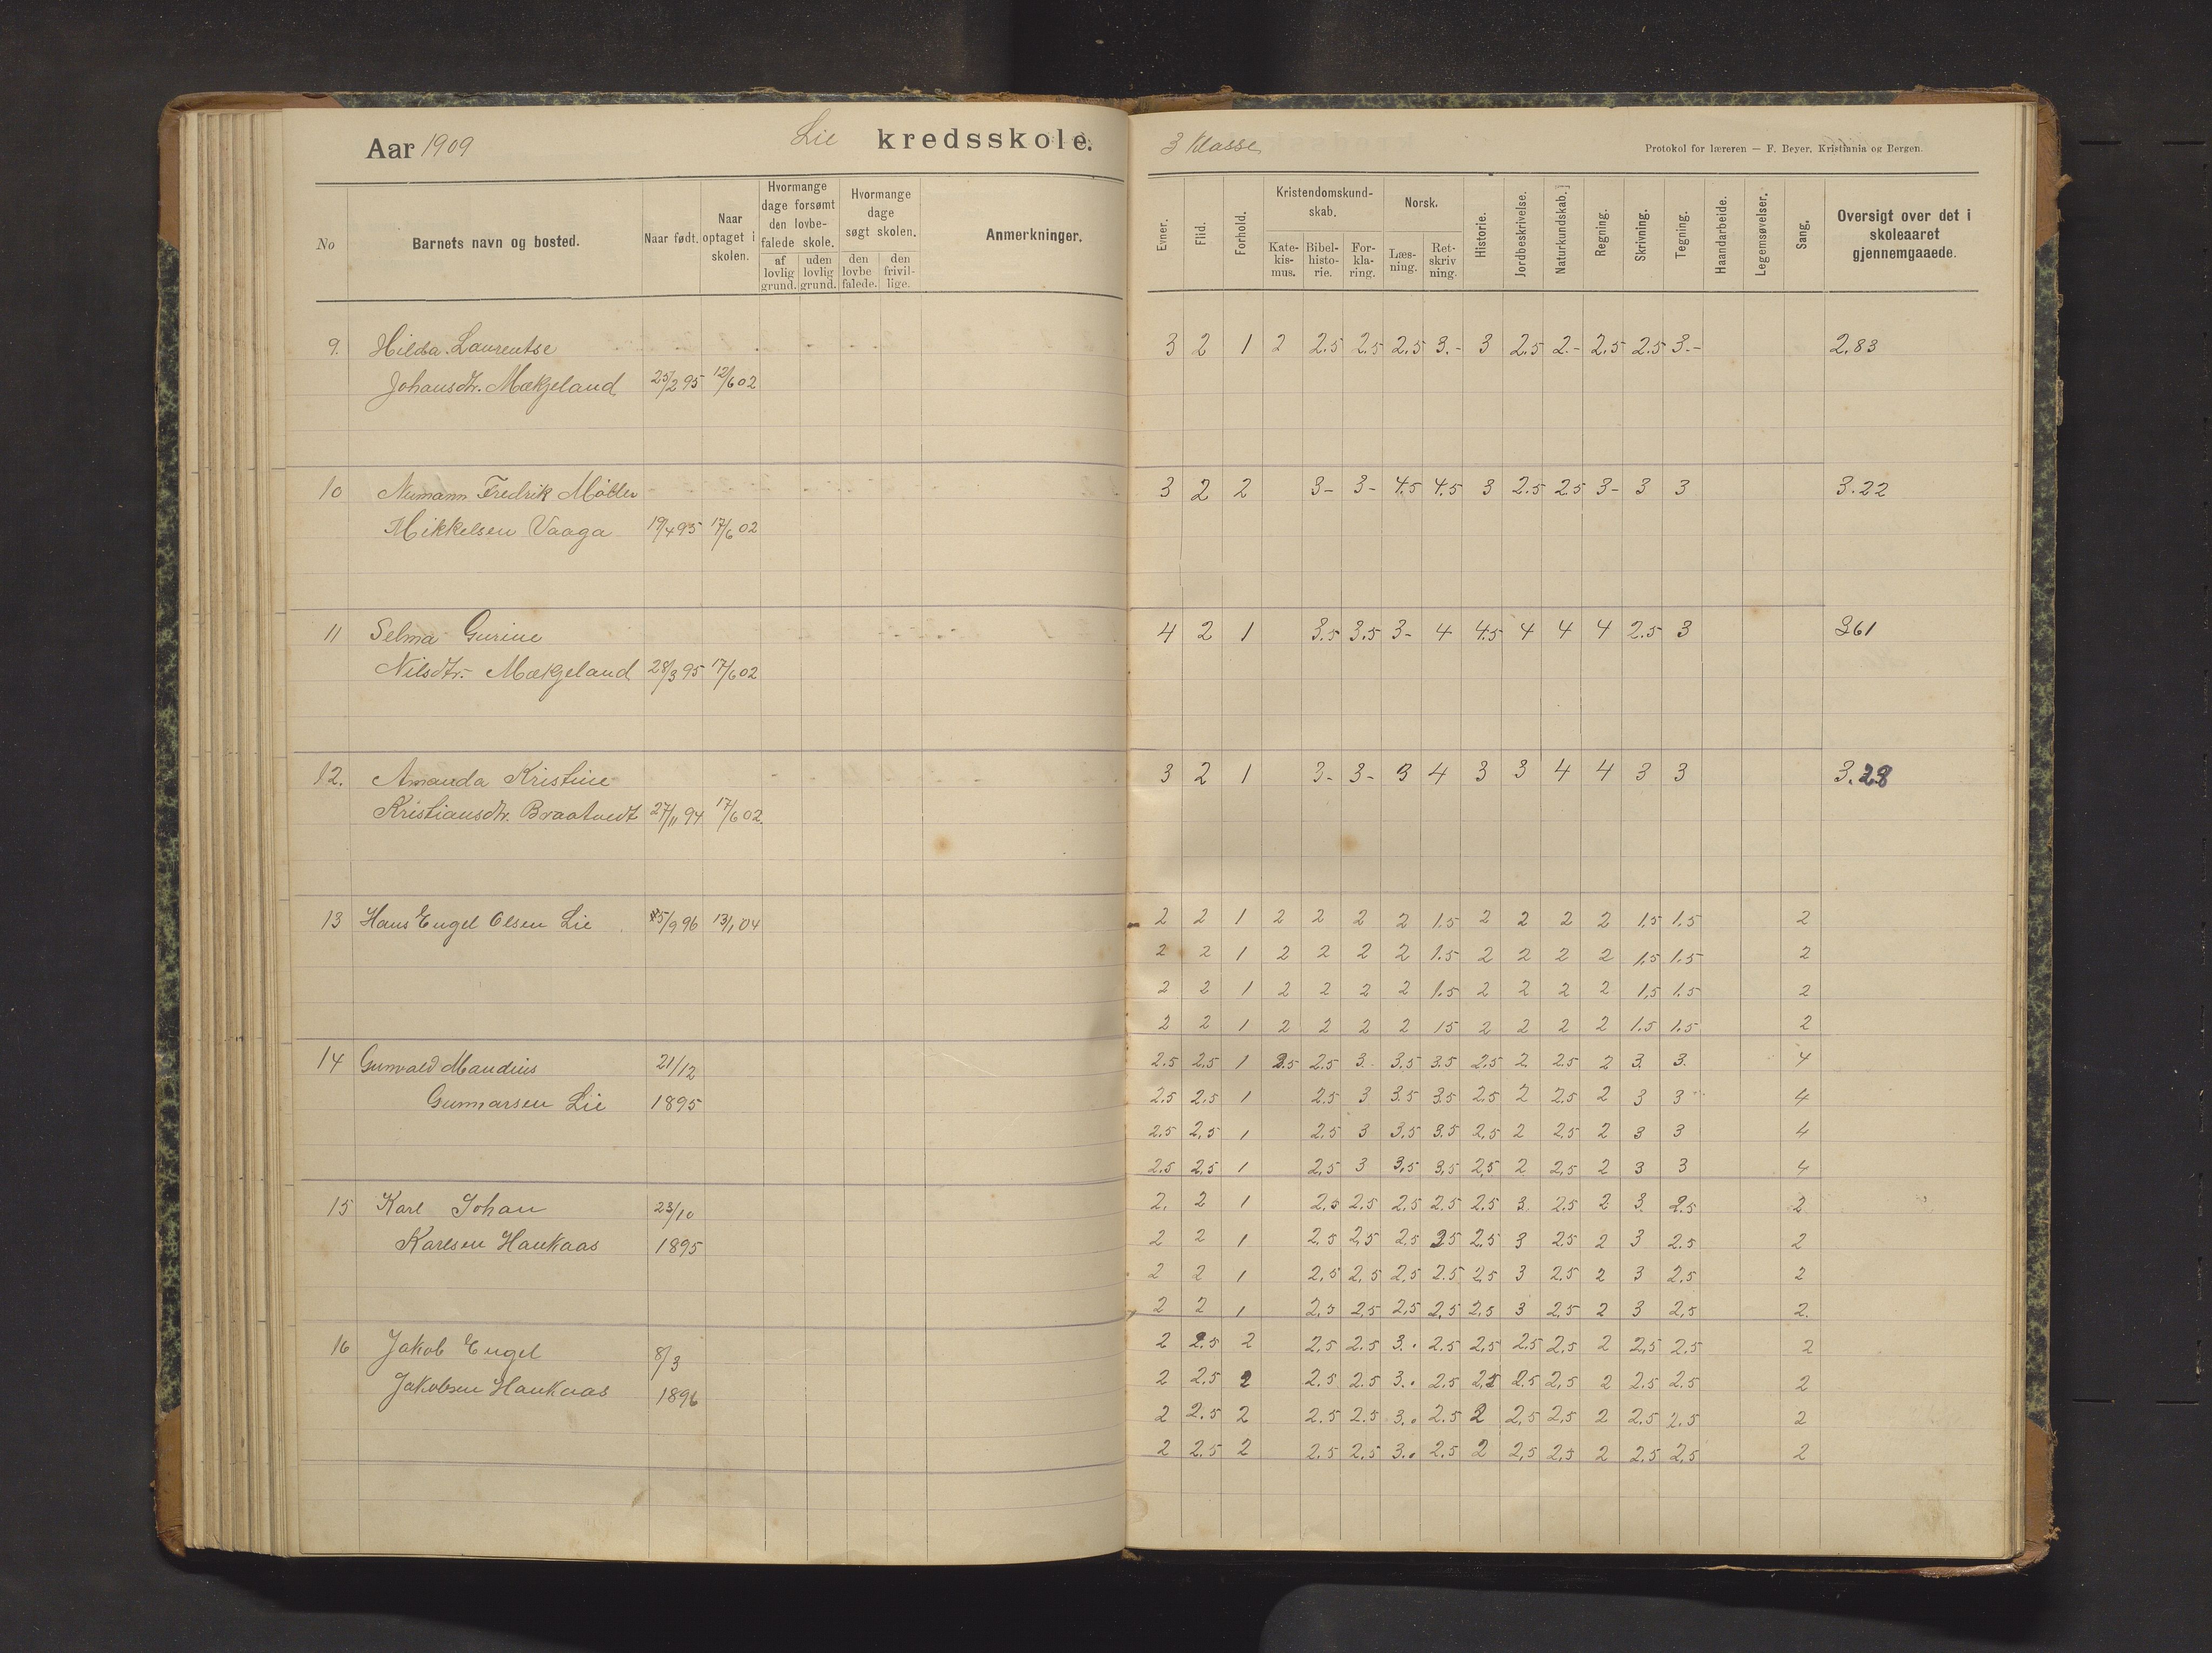 Aar 1909 Lie kredsskole. 3 Klasse.
Protokol for læreren — F. Beyer, Kristiania og Bergen.
No Barnets navn og bosted. Naar født. Naar optaget i skolen. Hvormange dage forsømt den lovbefalede skole. af lovlig grund. uden lovlig grund. Hvormange dage søgt skolen. den lovbefalede. den frivillige. Anmerkninger.
Evner. Flid. Forhold. Kristendomskundskab. Katekismus. Bibelhistorie. Forklaring. Norsk. Læsning. Retskrivning. Historie. Jordbeskrivelse. Naturkundskab. Regning. Skrivning. Tegning. Haandarbeide. Legemsøvelser. Sang. Oversigt over det i skoleaaret gjennemgaaede.
9. Hilda Laurentse 3 2 1 2 2.5 2.5 2.5 3.- 3 2.5 2.- 2.5 2.5 3.- 2,83
Johansdtr. Mækjeland 25/2 95 12/6 02
10 Numann Fredrik Møller 3 2 2 3- 3- 4.5 4.5 3 2.5 2.5 3- 3 3 3.22
Mikkelsen Vaaga 19/4 95 17/6 02
11 Selma Gurine 4 2 1 3.5 3.5 3- 4 4.5 4 4 4 2.5 3 361
Nilsdtr. Mækjeland 28/3 95 17/6 02
12. Amanda Kristine 3 2 1 3- 3- 3 4 3 3 4 4 3 3 3.28
Kristiansdtr. Braatvedt 27/11 94 17/6 02.
13 Hans Engel Olsen Lie 5/9 96 13/1 04 2 2 1 2 2 2 2 1.5 2 2 2 2 1.5 1.5 2
2 2 1 2 2 2 2 1.5 2 2 2 2 1.5 1.5 2
2 2 1 2 2 2 2 1.5 2 2 2 2 1,5 1.5 2
2 2 1 2 2 2 2 15 2 2 2 2 1.5 1.5 2
14 Gunvald Mandius 21/12 2.5 2.5 1 2.5 2.5 3. 3.5 3.5 2.5 2 2.5 2 3. 3. 4
Gunnarsen Lie 1895 2.5 2.5 1 2.5 3 3.5 3.5 2.5 2 2.5 2 3 3 4
2.5 2,5 1 2,5 3 3,5 3.5 2,5 2 2.5 2 3 3 4
2.5 2.5 1 2,5 3 3,5 3,5 2,5 2 2,5 2 3 3 4
15 Karl Johan 23/10 2. 2 1 2.5 2.5 2.5 2.5 2.5 3. 2.5 2 3. 2.5 2
Karlsen Haukaas 1895 2 2 1 2.5 2,5 2.5 25 2.5 3 2.5 2 3 2.5 2
2 2 1 2,5 2,5 2,5 2.5 2,5 3 2.5 2 3 2,5 2
2 2 1 2,5 2,5 2,5 2,5 2.5 3 2,5 2 3 2,5 2.
16 Jakob Engel 8/3 2 2.5 2 2,5 2.5 3. 2.5 2,5 2.5 2,5 2 2,5 2.5 2
Jakobsen Haukaas 1896 2 2.5 2 2.5 2.5 3. 2,5 2,5 2.5 2,5 2 2.5 2.5 2
2 2.5 2 2.5 2.5 3. 2.5 2 2,5 2,5 2 2.5 2.5 2
2 2.5 2 2.5 2,5 3. 2.5 2 2,5 2,5 2 2.5 2,5 2